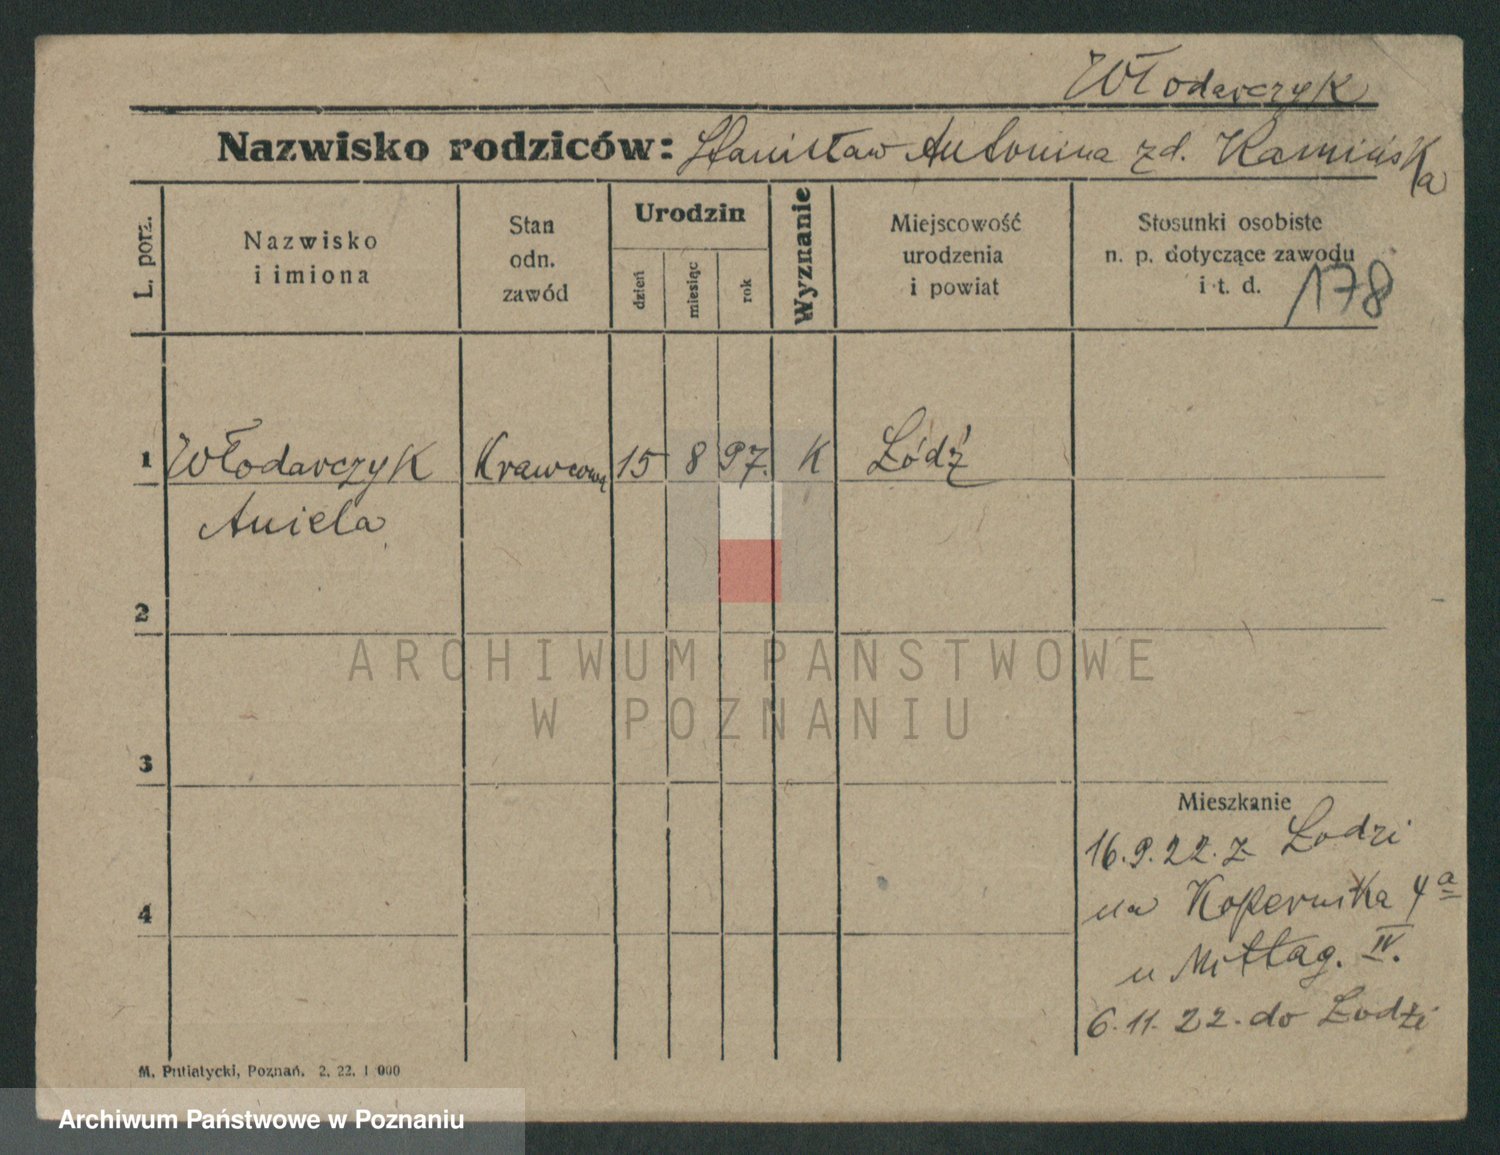 Włodarczyk
Nazwisko rodziców: Stanisław Antonina zd. Kamińska
L. porz.
Nazwisko
i imiona
Stan
odn.
zawód
Urodzin
dzień
miesiąc
rok
Wyznanie
Miejscowość
urodzenia
i powiat
Stosunki osobiste
n. p. dotyczące zawodu
i t. d.
178
1 Włodarczyk Krawcowa 15 8 97. K Łódź
Aniela
2
ARCHIWUM PAŃSTWOWE
W POZNANIU
3
Mieszkanie
16.9.22. z Łodzi
4
na Kopernika 4a
u Mittag. IV.
6.11.22. do Łodzi
M. Putiatycki, Poznań. 2. 22. 1 000
Archiwum Państwowe w Poznaniu